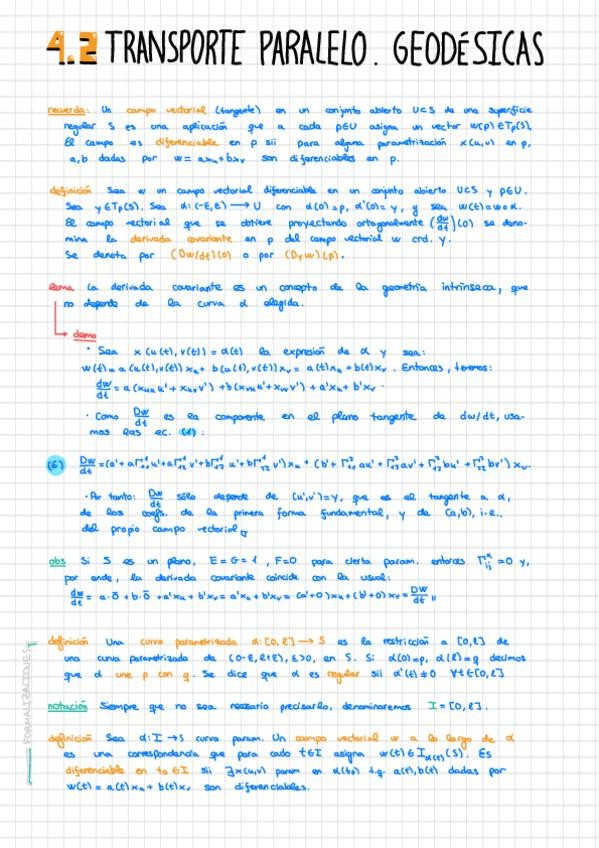 4.2 TRANSPORTE PARALELO. GEODÉSICAS
recuerda: Un campo vectorial (tangente) en un conjunto abierto U⊂S de una superficie
regular S es una aplicación que a cada p∈U asigna un vector w(p)∈Tp(S).
El campo es diferenciable en p sii para alguna parametrización x(u,v) en p,
a,b dadas por w = axᵤ+bxᵥ son diferenciables en p.
definición Sea w un campo vectorial diferenciable en un conjunto abierto U⊂S y p∈U.
Sea y∈Tp(S). Sea α: (-ε,ε) → U con α(0)=p, α'(0)=y, y sea w(t)=w∘α.
El campo vectorial que se obtiene proyectando ortogonalmente (dw/dt)(0) se deno-
mina la derivada covariante en p del campo vectorial w crd. y.
Se denota por (Dw/dt)(0) o por (Dyw)(p).
lema La derivada covariante es un concepto de la geometría intrínseca, que
no depende de la curva α elegida.
demo
· Sea x(u(t),v(t)) = α(t) la expresión de α y sea:
w(t) = a(u(t),v(t))xᵤ + b(u(t),v(t))xᵥ = a(t)xᵤ + b(t)xᵥ. Entonces, tenemos:
dw/dt = a(xᵤᵤu' + xᵤᵥv') + b(xᵥᵤu' + xᵥᵥv') + a'xᵤ + b'xᵥ.
· Como Dw/dt es la componente en el plano tangente de dw/dt, usa-
mos las ec. (1):
(6) Dw/dt = (a' + aΓ₁₁¹u' + aΓ₁₂¹v' + bΓ₁₂¹u' + bΓ₂₂¹v')xᵤ + (b' + Γ₁₁²au' + Γ₁₂²av' + Γ₁₂²bu' + Γ₂₂²bv')xᵥ.
· Por tanto: Dw/dt sólo depende de (u',v')=y, que es el tangente a α,
de los coefs. de la primera forma fundamental, y de (a,b), i.e.,
del propio campo vectorial
obs Si S es un plano, E=G=1, F=0 para cierta param. entonces Γᵢⱼᵏ=0 y,
por ende, la derivada covariante coincide con la usual:
dw/dt = a·0̄ + b·0̄ + a'xᵤ + b'xᵥ = a'xᵤ + b'xᵥ = (a'+0)xᵤ + (b'+0)xᵥ = Dw/dt "
FORMALIZACIONES
definición Una curva parametrizada α: [0,ℓ] → S es la restricción a [0,ℓ] de
una curva parametrizada de (0-ε,ℓ+ε), ε>0, en S. Si α(0)=p, α(ℓ)=q decimos
que α une p con q. Se dice que α es regular sii α'(t)≠0 ∀t∈[0,ℓ]
notación Siempre que no sea necesario precisarlo, denominaremos I=[0,ℓ].
definición Sea α: I → S curva param. Un campo vectorial w a lo largo de α
es una correspondencia que para cada t∈I asigna w(t)∈Iα(t)(S). Es
diferenciable en t₀∈I sii ∃x(u,v) param en α(t₀) t.q. a(t),b(t) dados por
w(t) = a(t)xᵤ + b(t)xᵥ son diferenciables.